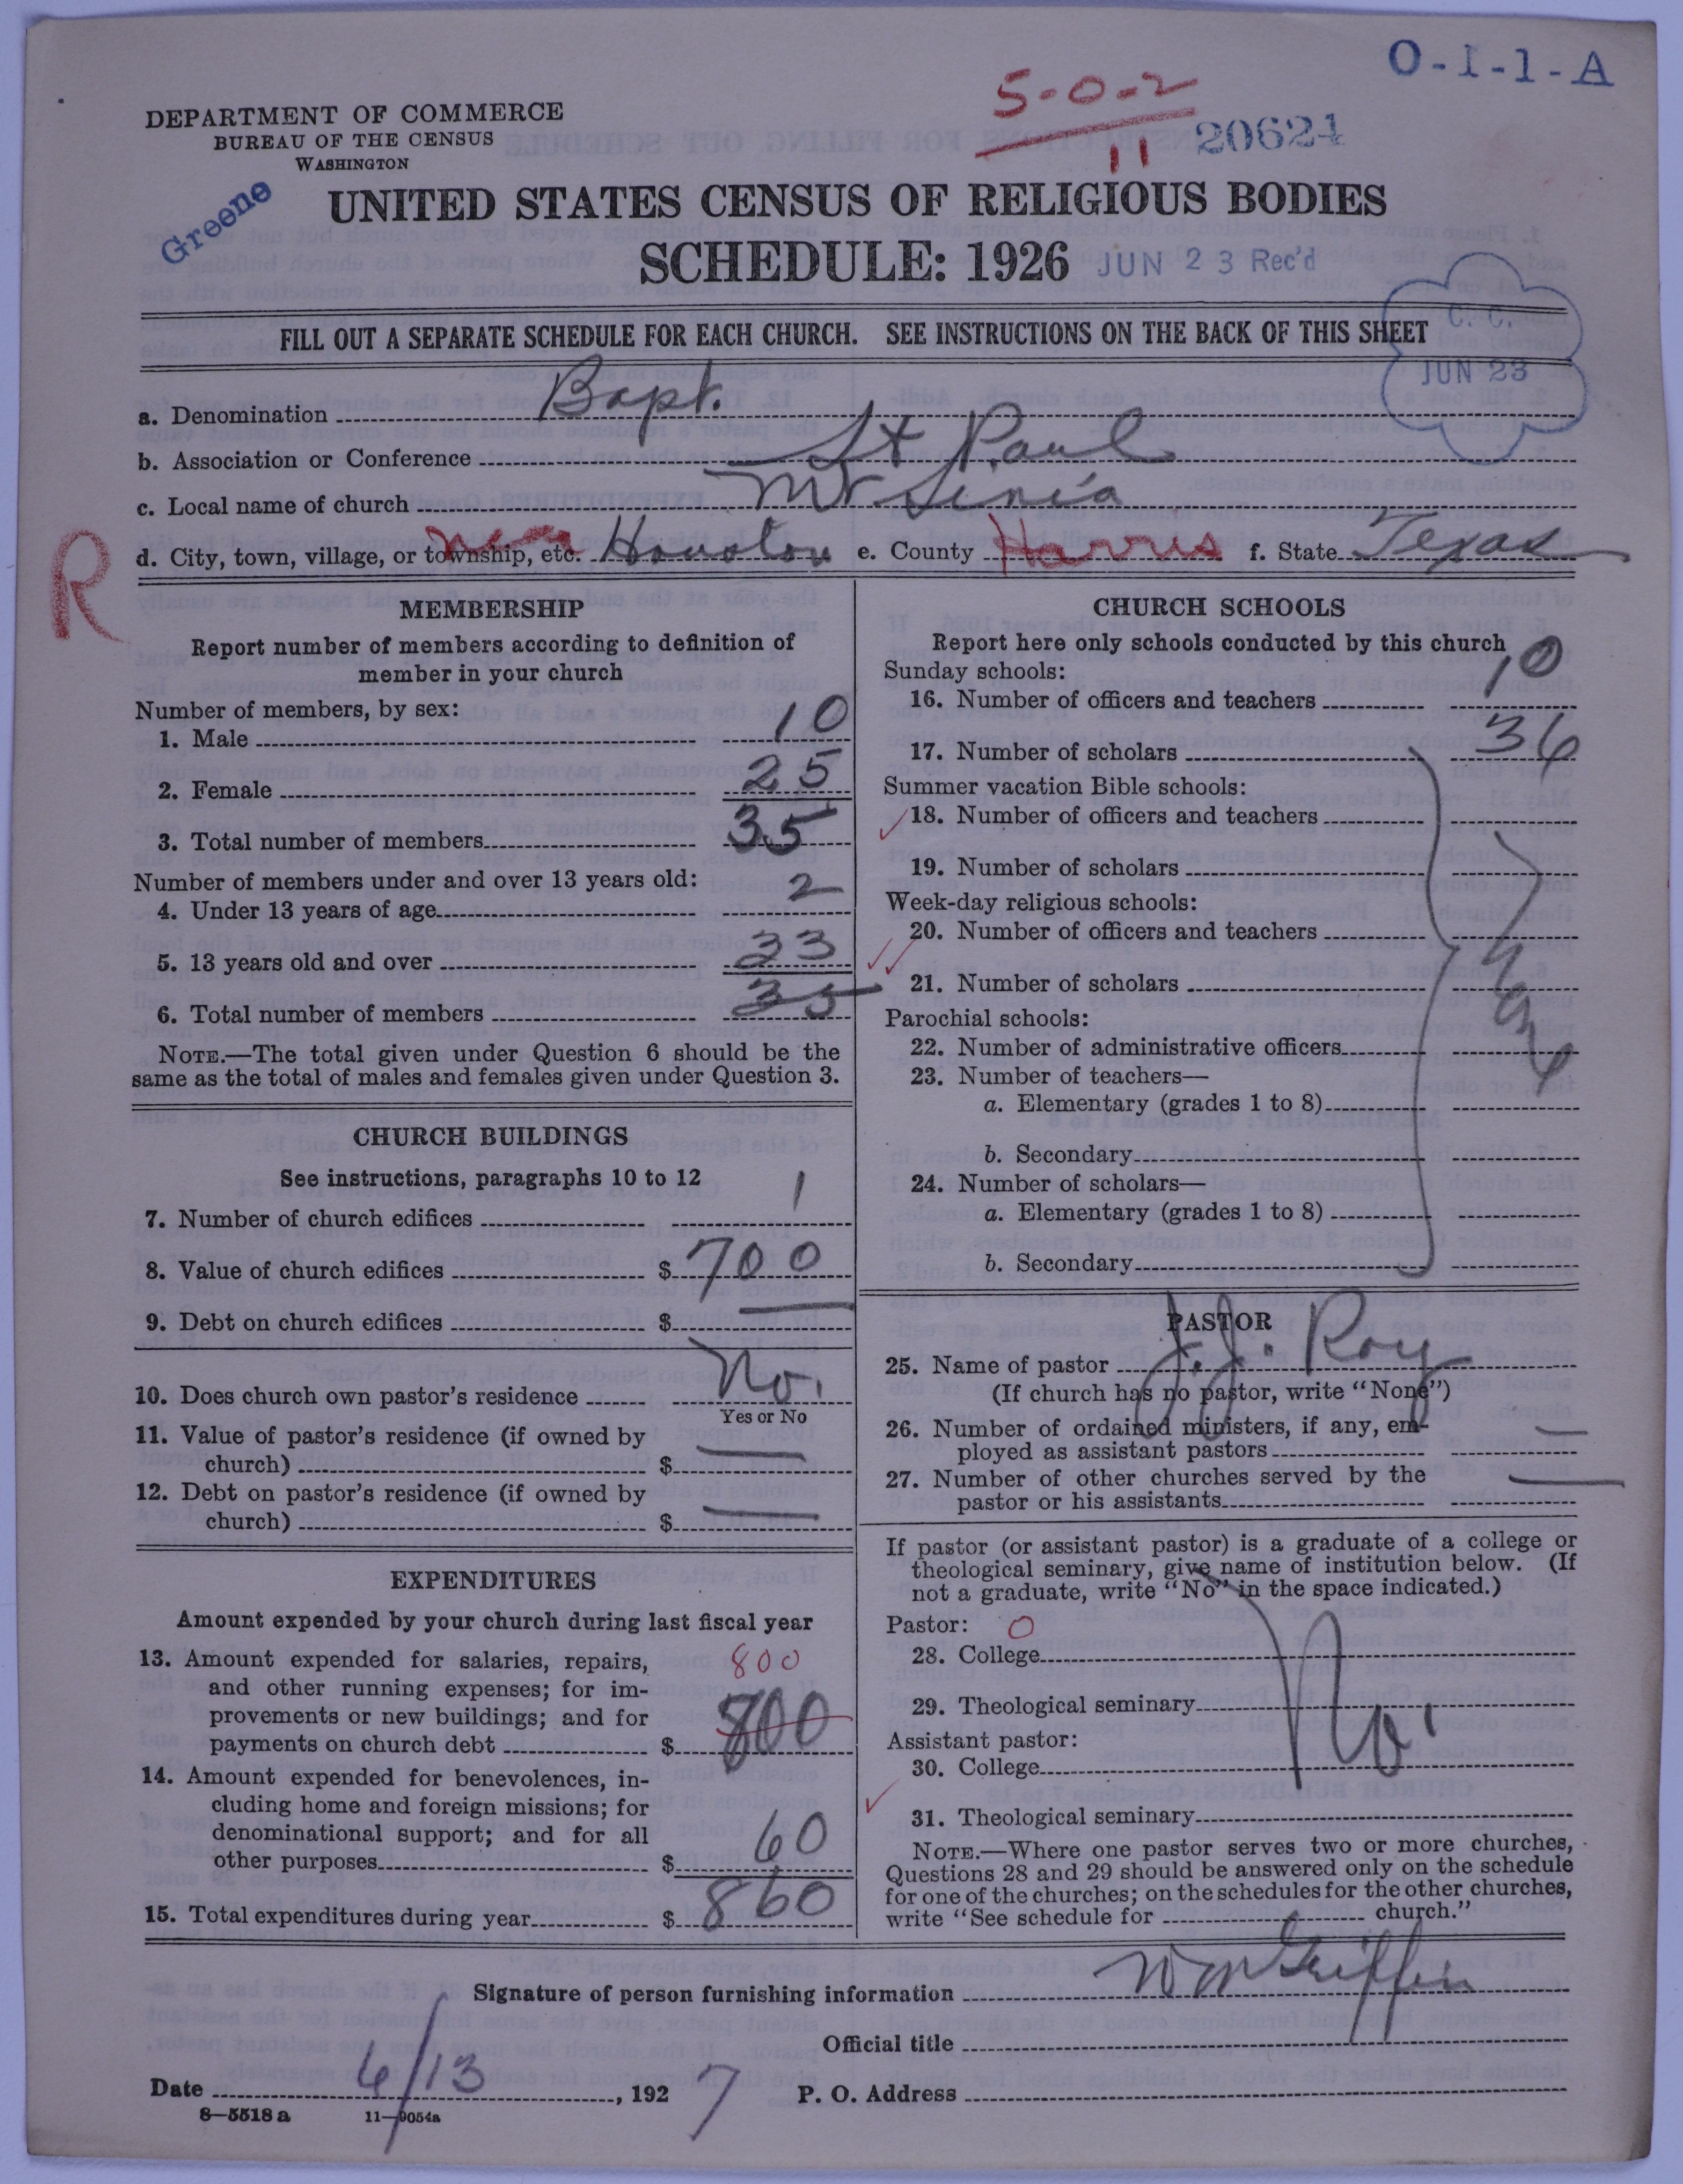 O-1-1-A
5-0-2
11
20624
DEPARTMENT OF COMMERCE
BUREAU OF THE CENSUS
WASHINGTON
Greene
UNITED STATES CENSUS OF RELIGIOUS BODIES
SCHEDULE: 1926
JUN 23 Rec'd
FILL OUT A SEPARATE SCHEDULE FOR EACH CHURCH. SEE INSTRUCTIONS ON THE BACK OF THIS SHEET
C. C.
JUN 23
a. Denomination Bapt.
b. Association or Conference St Paul
c. Local name of church Mt Sinia
d. City, town, village, or township, etc. near Houston e. County Harris f. State Texas
R
MEMBERSHIP
Report number of members according to definition of
member in your church
Number of members, by sex:
1. Male 10
2. Female 25
3. Total number of members 35
Number of members under and over 13 years old:
4. Under 13 years of age 2
5. 13 years old and over 33
6. Total number of members 35
NOTE.—The total given under Question 6 should be the
same as the total of males and females given under Question 3.
CHURCH BUILDINGS
See instructions, paragraphs 10 to 12
7. Number of church edifices 1
8. Value of church edifices $ 700
9. Debt on church edifices $ —
10. Does church own pastor's residence No.
Yes or No
11. Value of pastor's residence (if owned by
church) $ —
12. Debt on pastor's residence (if owned by
church) $ —
EXPENDITURES
Amount expended by your church during last fiscal year
13. Amount expended for salaries, repairs, 800
and other running expenses; for im-
provements or new buildings; and for
payments on church debt $ 800
14. Amount expended for benevolences, in-
cluding home and foreign missions; for
denominational support; and for all
other purposes $ 60
15. Total expenditures during year $ 860
CHURCH SCHOOLS
Report here only schools conducted by this church
Sunday schools:
16. Number of officers and teachers 10
17. Number of scholars 36
Summer vacation Bible schools:
18. Number of officers and teachers
19. Number of scholars
Week-day religious schools:
20. Number of officers and teachers
21. Number of scholars
None
Parochial schools:
22. Number of administrative officers
23. Number of teachers—
a. Elementary (grades 1 to 8)
b. Secondary
24. Number of scholars—
a. Elementary (grades 1 to 8)
b. Secondary
PASTOR
25. Name of pastor J. J. Roy
(If church has no pastor, write "None")
26. Number of ordained ministers, if any, em-
ployed as assistant pastors —
27. Number of other churches served by the
pastor or his assistants —
If pastor (or assistant pastor) is a graduate of a college or
theological seminary, give name of institution below. (If
not a graduate, write "No" in the space indicated.)
Pastor: 0
28. College
29. Theological seminary No.
Assistant pastor:
30. College
31. Theological seminary
NOTE.—Where one pastor serves two or more churches,
Questions 28 and 29 should be answered only on the schedule
for one of the churches; on the schedules for the other churches,
write "See schedule for church."
Signature of person furnishing information W M Griffin
Official title
Date 6/13, 1927 P. O. Address
8—5518 a 11—9054a